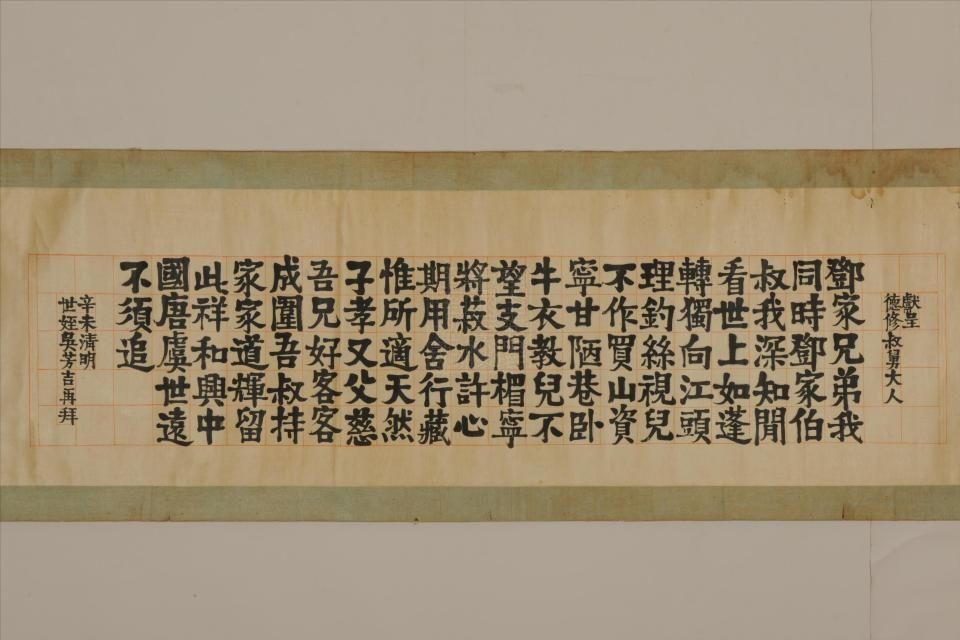 獻呈
德修叔舅大人
鄧家兄弟我
同時鄧家伯
叔我深知閒
看世上如蓬
轉獨向江頭
理釣絲視兒
不作買山資
寧甘陋巷卧
牛衣教兒不
望支門楣寧
將菽水許心
期用舍行藏
惟所適天然
子孝又父慈
吾兄好客客
成圍吾叔持
家家道輝留
此祥和興中
國唐虞世遠
不須追
辛未清明
世姪吳芳吉再拜